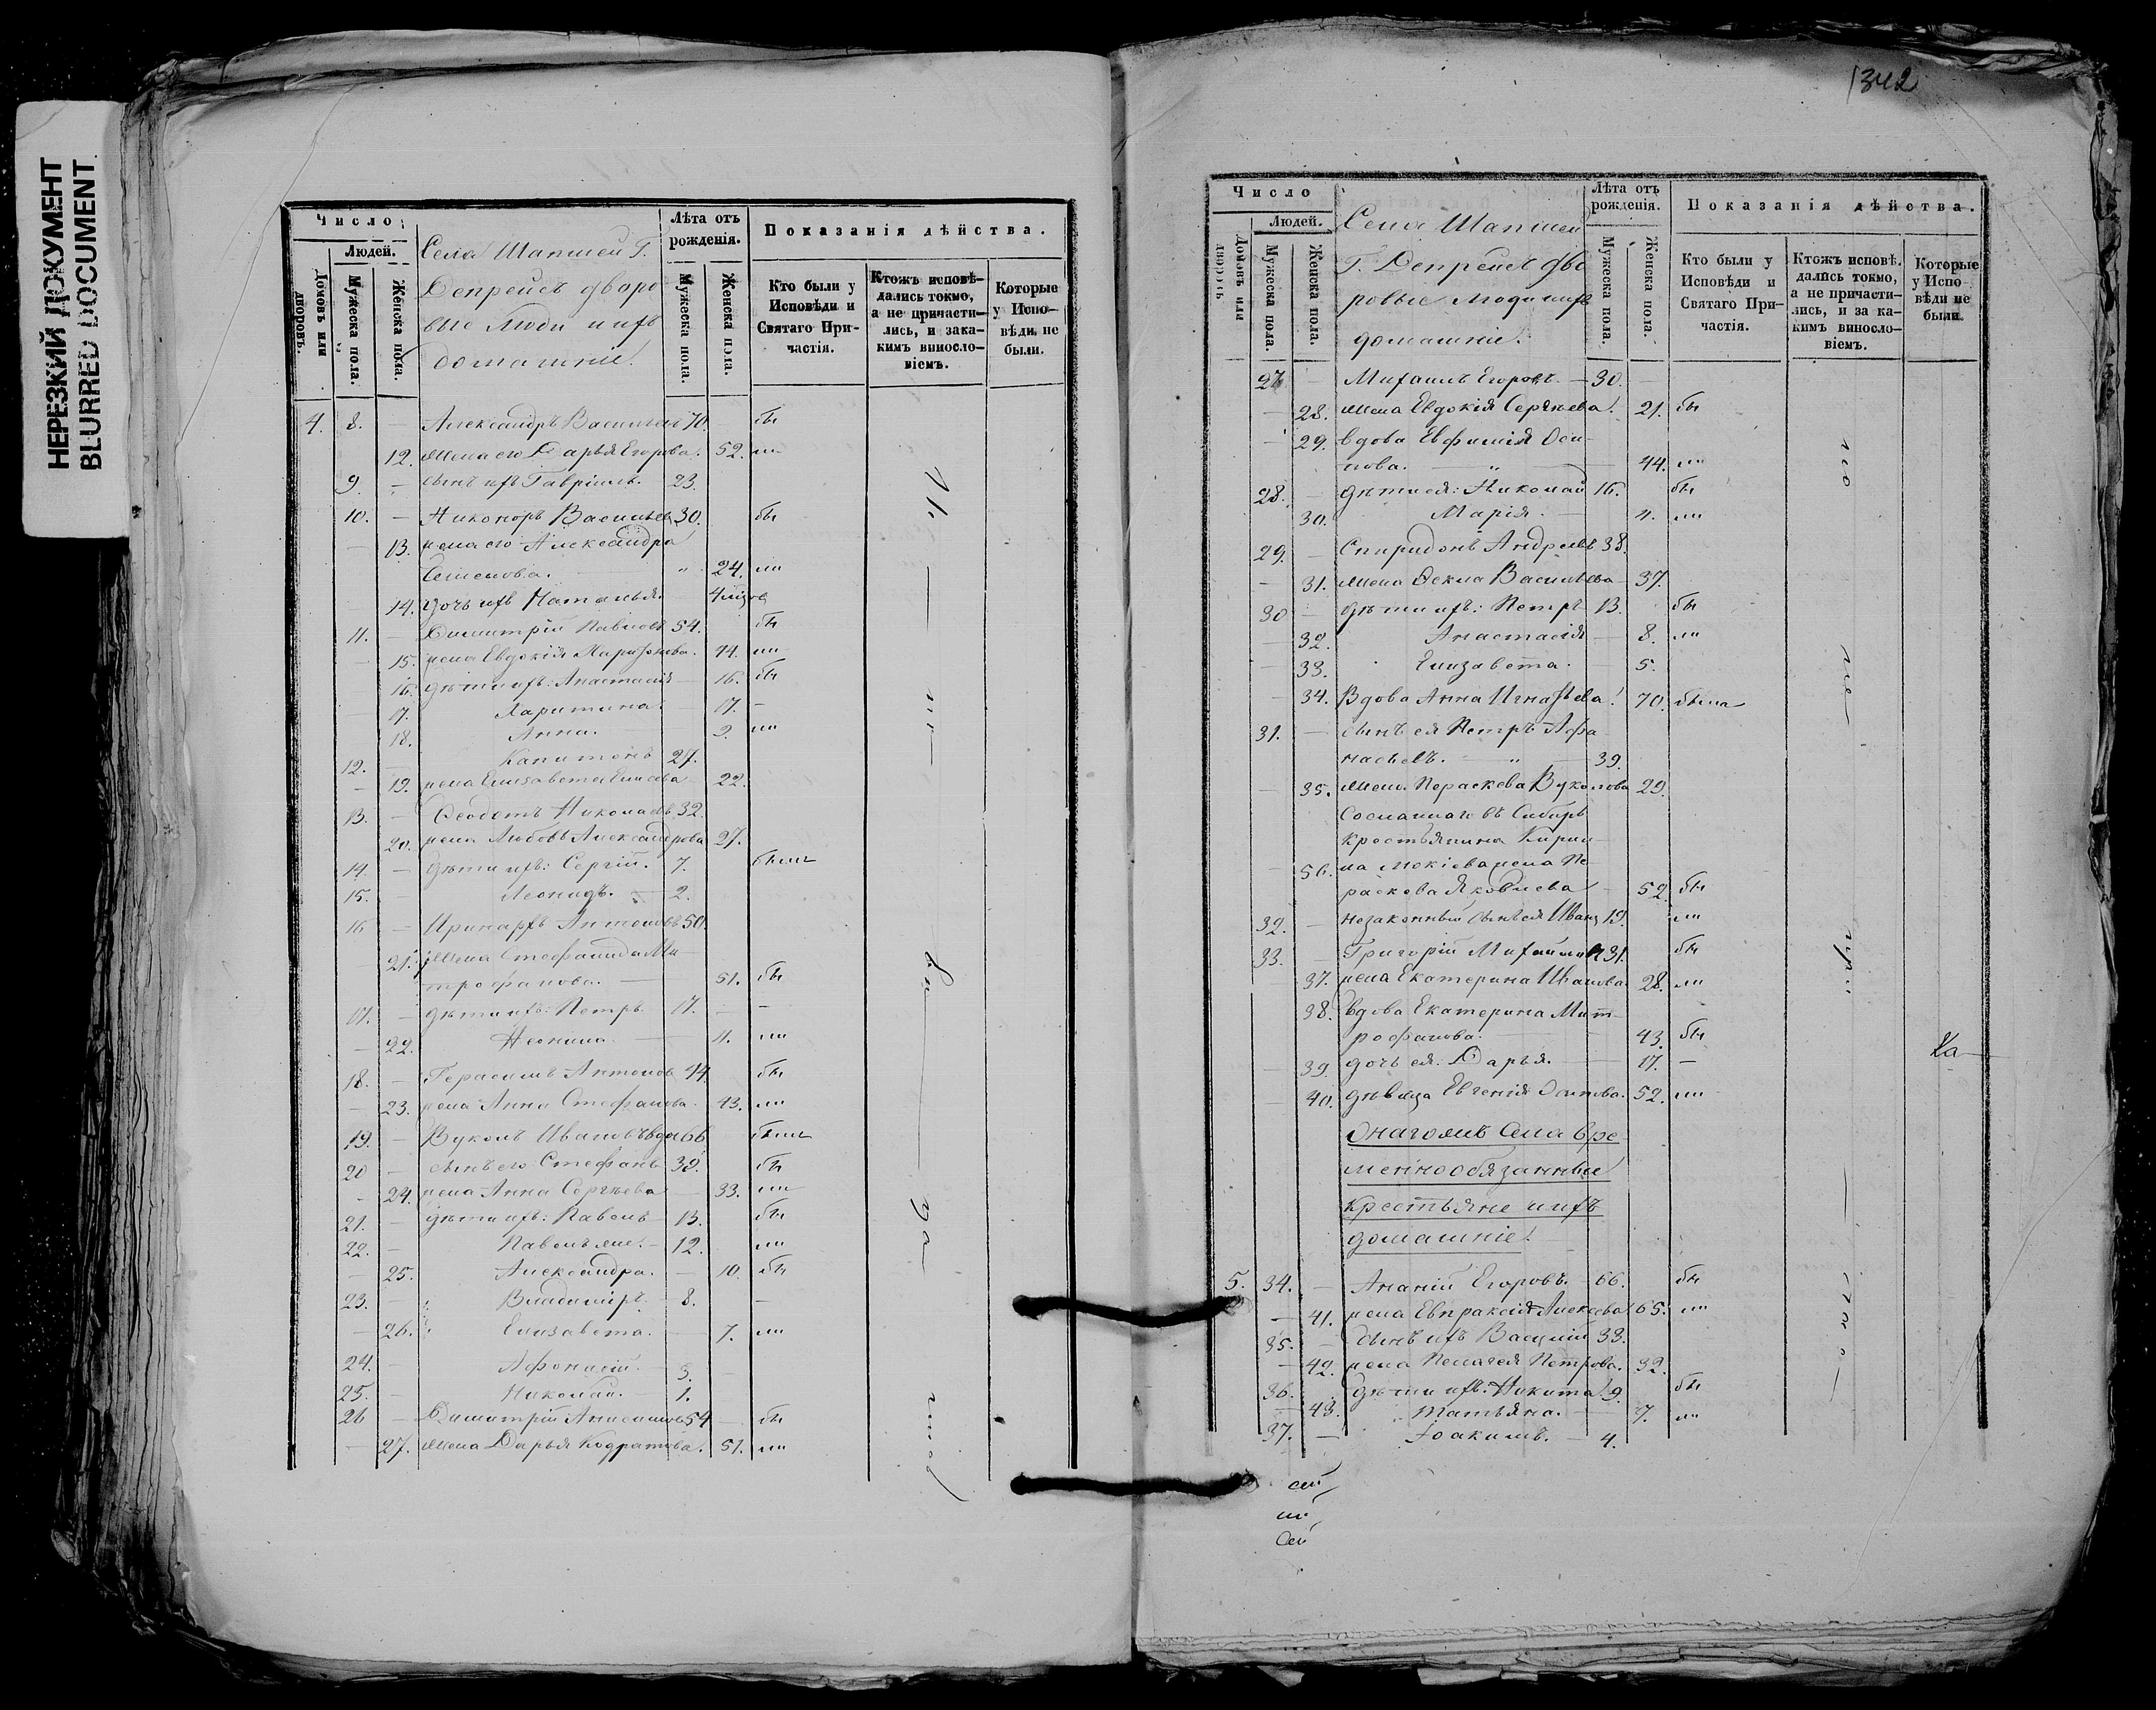 НЕРЕЗКИЙ ДОКУМЕНТ
BLURRED DOCUMENT
Число
Людей.
Домовъ или дворовъ.
Мужеска пола.
Женска пола.
Села Шапшей Г.
Депрейсъ дворо
выe люди и ихъ
домашніе.
Лѣта отъ рожденія.
Мужеска пола.
Женска пола.
Показанія дѣйства.
Кто были у Исповѣди и Святаго При-частія.
Ктожъ исповѣ-дались токмо, а не причасти-лись, и зака-кимъ винosло-віемъ.
Которые у Испо-вѣди не были.
4. 8. — Александръ Васильевъ 70. бы
12. жена его Дарья Егорова. 52. ли
9. — сынъ ихъ Гавріилъ. 23.
10. — Никоноръ Васильев 30. бы
13. жена его Александра
Семенова. " 24. ли
14. дочь ихъ Наталья. 4
11. — Димитрій Павловъ 54. бы
15. жена Евдокія Харитонова. 44. ли
16. дѣти ихъ: Анастасія 16. бы
17. Харитина. 17. —
18. Анна. 2. ли
12. Капитонъ 27.
19. жена Елизавета 22.
13. — Ѳеодотъ Николаевъ 32.
20. жена Любовь Александрова 27.
14. — дѣти ихъ: Сергій. 7. былъ
15. — Леонидъ. 2.
16 — Иринархъ Антоновъ 50.
21. Жена Стефанида Ми-
трофанова. 51. бы
17. — дѣти ихъ: Петръ 17. —
22. Неонила 11. ли
18. — Герасимъ Антонов 44. бы
23. жена Анна Стефанова. 43. ли
19. — Вуколъ Ивановъ вдо 66 былъ
20 — сынъ его Стефанъ 38. бы
24. жена Анна Сергѣева 33. ли
21. — дѣти ихъ: Павелъ 13. бы
22. — Павелъ же. 12. ли
25. Александра. 10. бы
23. Владиміръ. 8. —
26. Елизавета. 7. ли
24. — Афонасій. 3.
25. — Николай. 1.
26 — Димитрій Анисимов 54 бы
27. жена Дарья Кодратова. 51. ли
1342
Число
Людей.
Домовъ или
Мужеска пола.
Женска пола.
Села Шапшей
Г. Депрейсъ дво
ровые люди и ихъ
домашніе.
Лѣта отъ рожденія.
Мужеска пола.
Женска пола.
Показанія дѣйства.
Кто были у Исповѣди и Святаго При-частія.
Ктожъ исповѣ-дались токмо, а не причасти-лись, и за ка-кимъ винocло-віемъ.
Которые у Испо-вѣди не были.
27. — Михаилъ Егоровъ. 30.
28. жена Евдокія Сергѣева. 21. бы
29. вдова Евфимія Оси-
пова. " 44. ли
28. — дѣти ея: Николай 16. бы
30. Марія. 11. ли
29. — Спиридонъ Андреевъ 38.
31. жена Ѳекла Васильева 37.
30 — дѣти ихъ: Петръ 13. бы
32. Анастасія 8. ли
33. Елизавета. 5.
34. Вдова Анна Игнатьева. 70. была
31. — сынъ ея Петръ Афа
насьевъ. " 39.
35. жена Параскева Вуколова 29.
Сосланнаго въ Сибирь
крестьянина Кирил-
36. ла Мокіева жена Па
раскева Яковлева 52. бы
32. — незаконный сынъ ея Иванъ 19. ли
33. — Григорій Михайлов 31. бы
37. жена Екатерина Иванова 28. ли
38. вдова Екатерина Мит-
рофанова. 43. бы
39. дочь ея: Дарья. 17. —
40. дѣвица Евгенія 52. ли
Онагожъ села вре
меннообязанные
крестьяне и ихъ
домашніе.
5. 34. — Ананій Егоровъ. 66. бы
41. жена Евпраксія Алексѣева 65. ли
35. — сынъ ихъ Василій 33.
42. жена Пелагея Петрова. 32.
36. дѣти ихъ: Никита 9. бы
43. Татьяна. 7. ли
37. — Іоакимъ. 4.